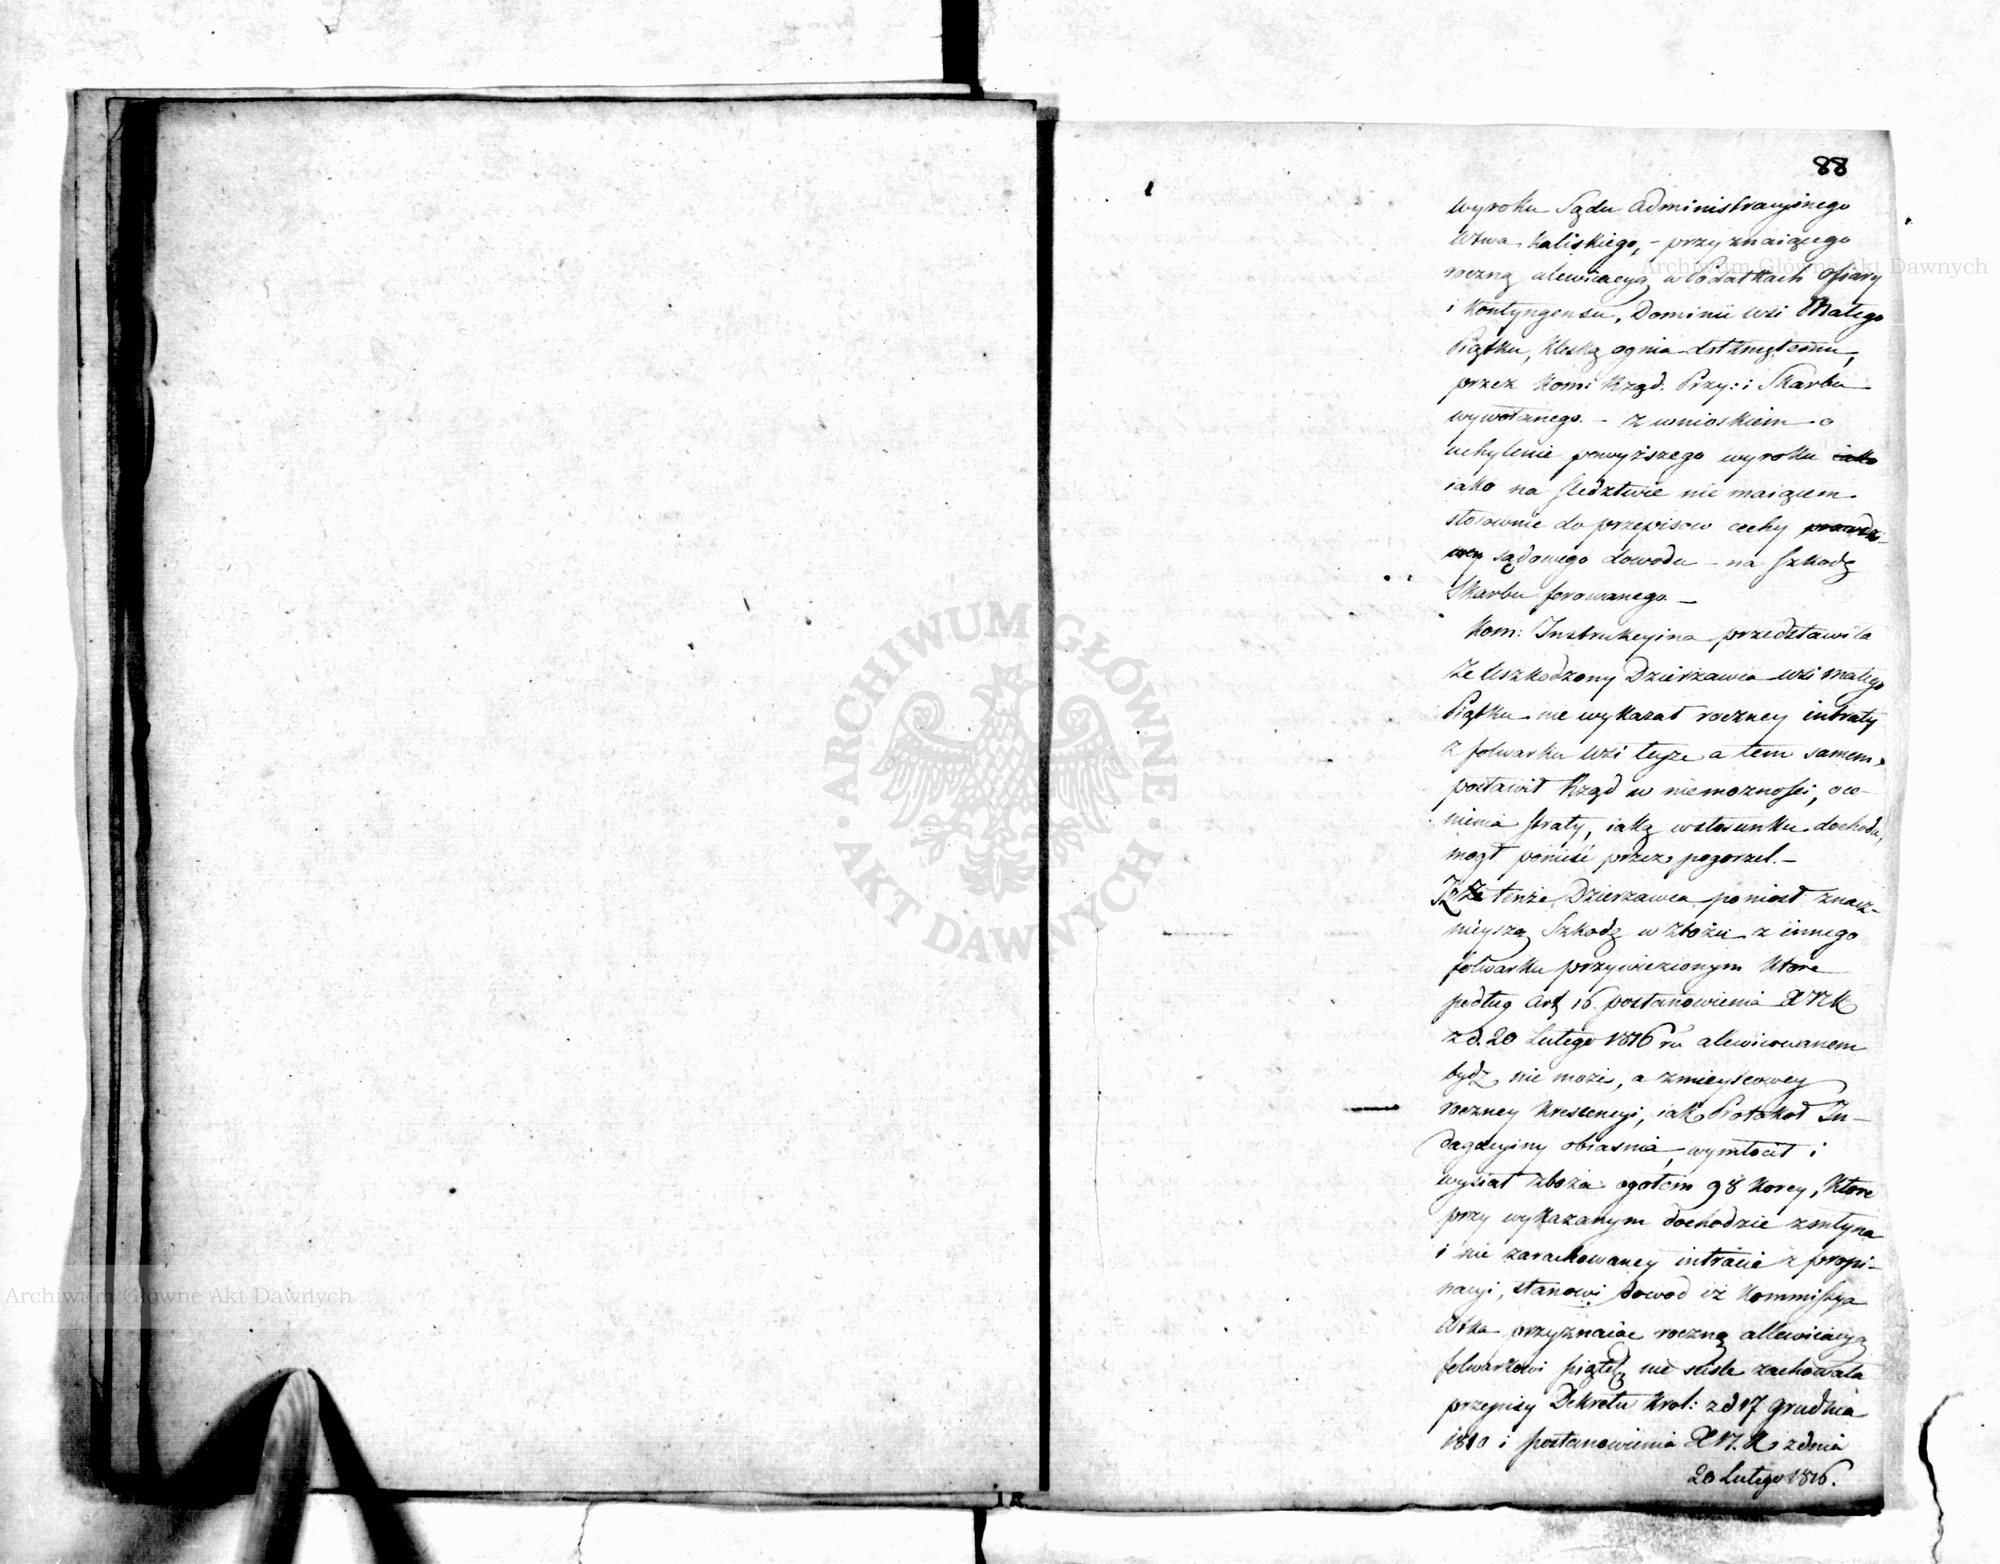 88
wyroku Sądu Administracyinego
Wtwa Kaliskiego, - przyznaiącego
roczną alewiacyą w Podatkach Ofiary
i Kontyngensu, Dominii wsi Małego
Piątku, klęską ognia dotkniętemu,
przez Kom: Rząd. Przy: i Skarbu
wywołanego. - z wnioskiem o
uchylenie powyższego wyroku iako
iako na śledztwie nie maiącem
stosownie do przepisow cechy prawdzi-
wey sądowego dowodu - na szkodę
Skarbu ferowanego. -
Kom: Instrukcyina przedstawiła
że Uszkodzony Dzierżawca wsi Małego
Piątku nie wykazał roczney intraty
z folwarku wsi teyże a tem samem
postawił Rząd w niemożności, oce-
nienia straty, iaką w stosunku dochodu,
mogł ponieść przez pogorzel. -
Iż tenże Dzierżawca poniosł znacz-
nieyszą Szkodę w zbożu z innego
folwarku przywiezionym które
podług Art 16. postanowienia X N K
z d. 20 Lutego 1816 ru alewiowanem
bydź nie może, a z mieyscowey
roczney krescencyi, iak Protokoł In-
dagacyiny obiasnia, wymłocił i
wysiał zboża ogołem 98 korcy, które
przy wykazanym dochodzie z młyna
i nie zarachowaney intracie z propi-
nacyi, stanowi dowod iż Kommissya
Wtka przyznaiąc roczną allewiacyą
folwarkowi Piątek nie sciśle zachowała
przepisy Dekretu Krol: z d 17 Grudnia
1810 i postanowienia X N. K. z dnia
20 Lutego 1816.
ARCHIWUM GŁÓWNE AKT DAWNYCH
Archiwum Główne Akt Dawnych
Archiwum Główne Akt Dawnych